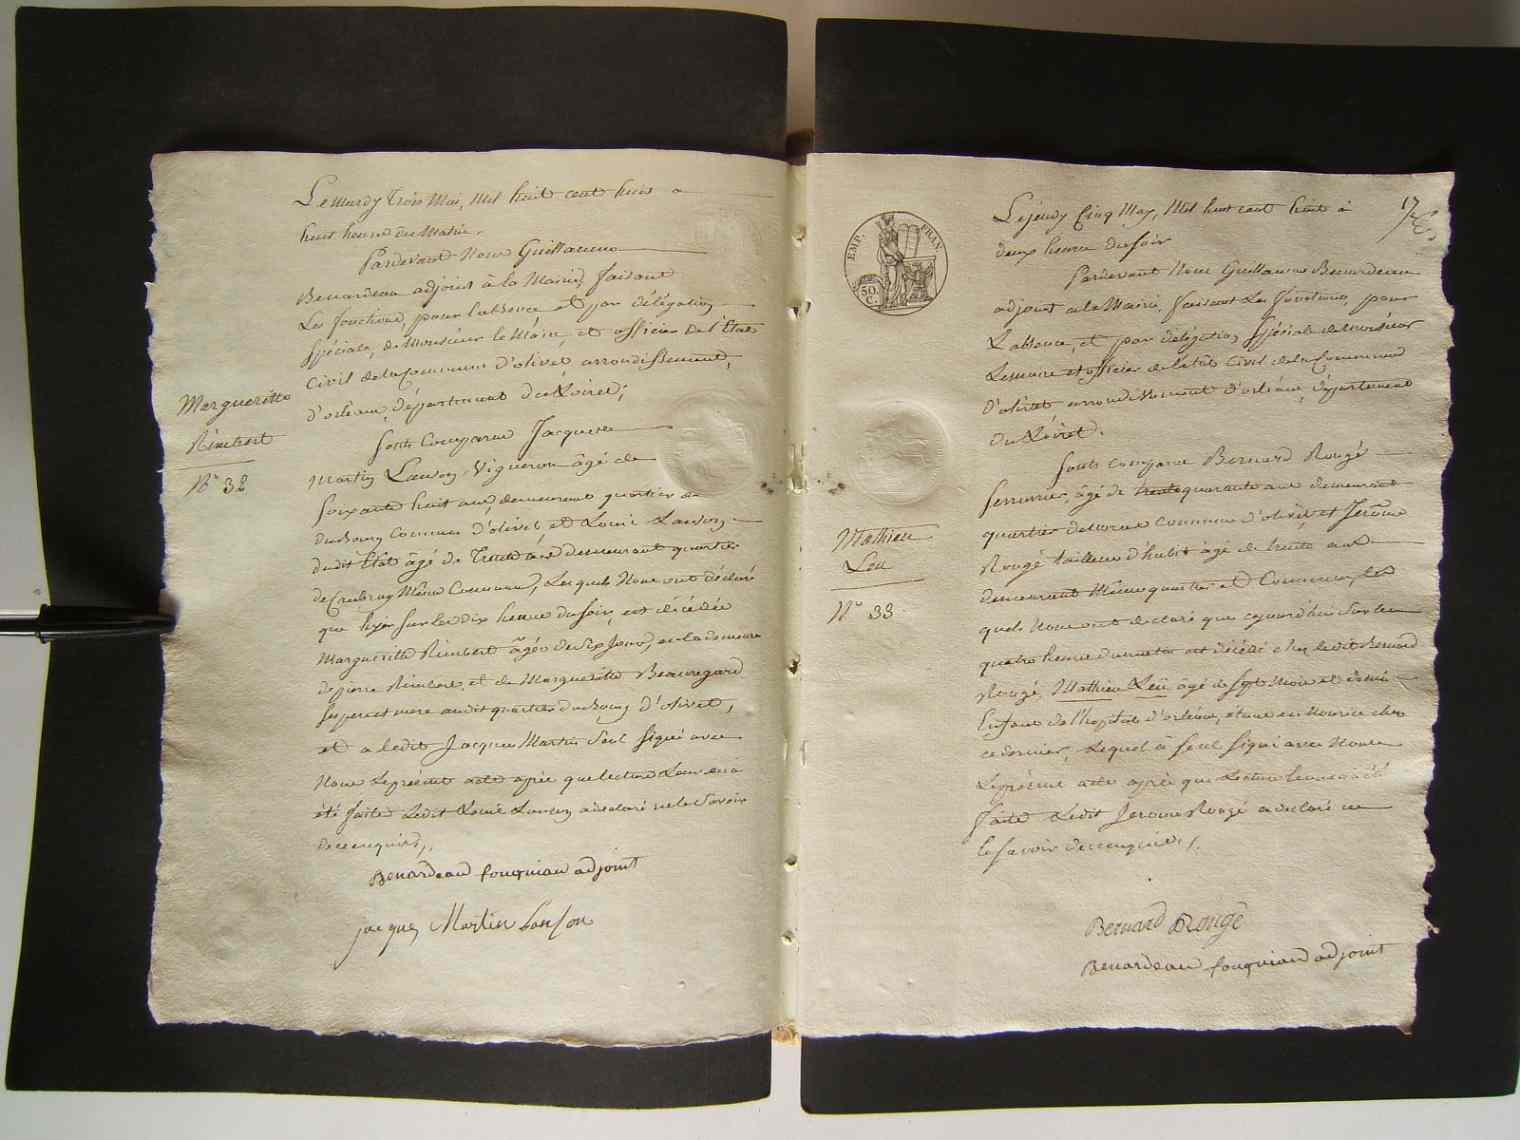 Le mardy trois Mai, Mil huit cent huit a
huit heures du Matin.
Pardevant Nous Guillaume
Benardeau adjoint à la Mairie, faisant
Les fonctions, pour l'absence, et par délégation
spéciale, de Monsieur le Maire, et officier de l'État
Civil de la Commune d'olivet arrondissement,
d'orléans, département du Loiret;
Sont Comparus Jacques
Martin Lanson, Vigneron âgé de
soixante huit ans, demeurant quartier
du Bourg Commune d'olivet et Louis Lanson
dudit État âgé de Trente ans demeurant quartier
de Même Commune, Lesquels Nous ont déclaré
que hyer sur les dix heures du soir, est décédée
Marguerite Rimbert âgée de six Jours, en la demeure
de pierre Rimbert, et de Marguerite Beauregard
ses pere et mere audit quartier du Bourg d'olivet,
et a ledit Jacques Martin seul signé avec
Nous Le présent acte après que lecture Leur en à
été faite Ledit Louis Lanson a déclaré ne le savoir
de ce enquis,.
Benardeau fouqueau adjoint
jacques Martin Lanson
Marguerite
Rimbert
N° 32
17
EMP. FRAN.
50.
C.
Le jeudy Cinq May, Mil huit cent huit à
deux heures du soir
Pardevant Nous Guillaume Benardeau
adjoint à la Mairie faisant Les fonctions, pour
L'absence, et par délégation spéciale de Monsieur
Le maire et officier de l'état Civil de la Commune
d'olivet arrondissement d'orléans, département
du Loiret.
Sont comparus Bernard Rougé
serrurier, âgé de trente quarante ans demeurant
quartier commune d'olivet et Jerôme
Rougé tailleur d'habit âgé de trente ans
demeurant Même quartier et Commune, les
quels Nous ont déclaré que cejourd'hui sur les
quatre heures du matin est décédé chez ledit Bernard
Rougé, Mathieu Leu âgé de sept mois et demi
Enfant de l'hopital d'orléans, étant en Nourice chez
ce dernier, Lequel à seul signé avec Nous
Le présent acte après que Lecture leur en a été
faite Ledit Jerome Rougé a déclaré ne
le savoir de ce enquis,.
Bernard Rougé
Benardeau fouqueau adjoint
Mathieu
Leu
N° 33